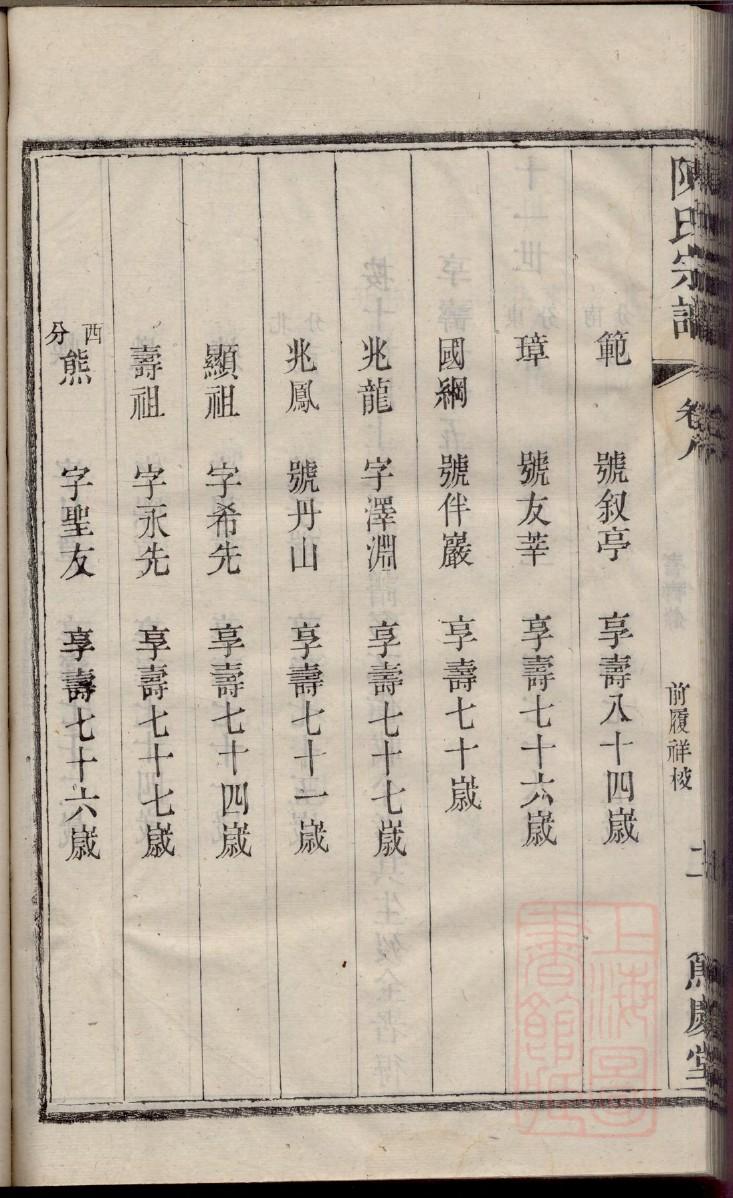 陳氏宗譜
卷
前履祥梭
堂
範 號叙亭 享壽八十四歲
璋 號友莘 享壽七十六歲
國綱 號伴巖 享壽七十歲
兆龍 字澤淵 享壽七十七歲
兆鳳 號丹山 享壽七十一歲
顯祖 字希先 享壽七十四歲
壽祖 字永先 享壽七十七歲
西分 熊 字聖友 享壽七十六歲
上海圖書館藏